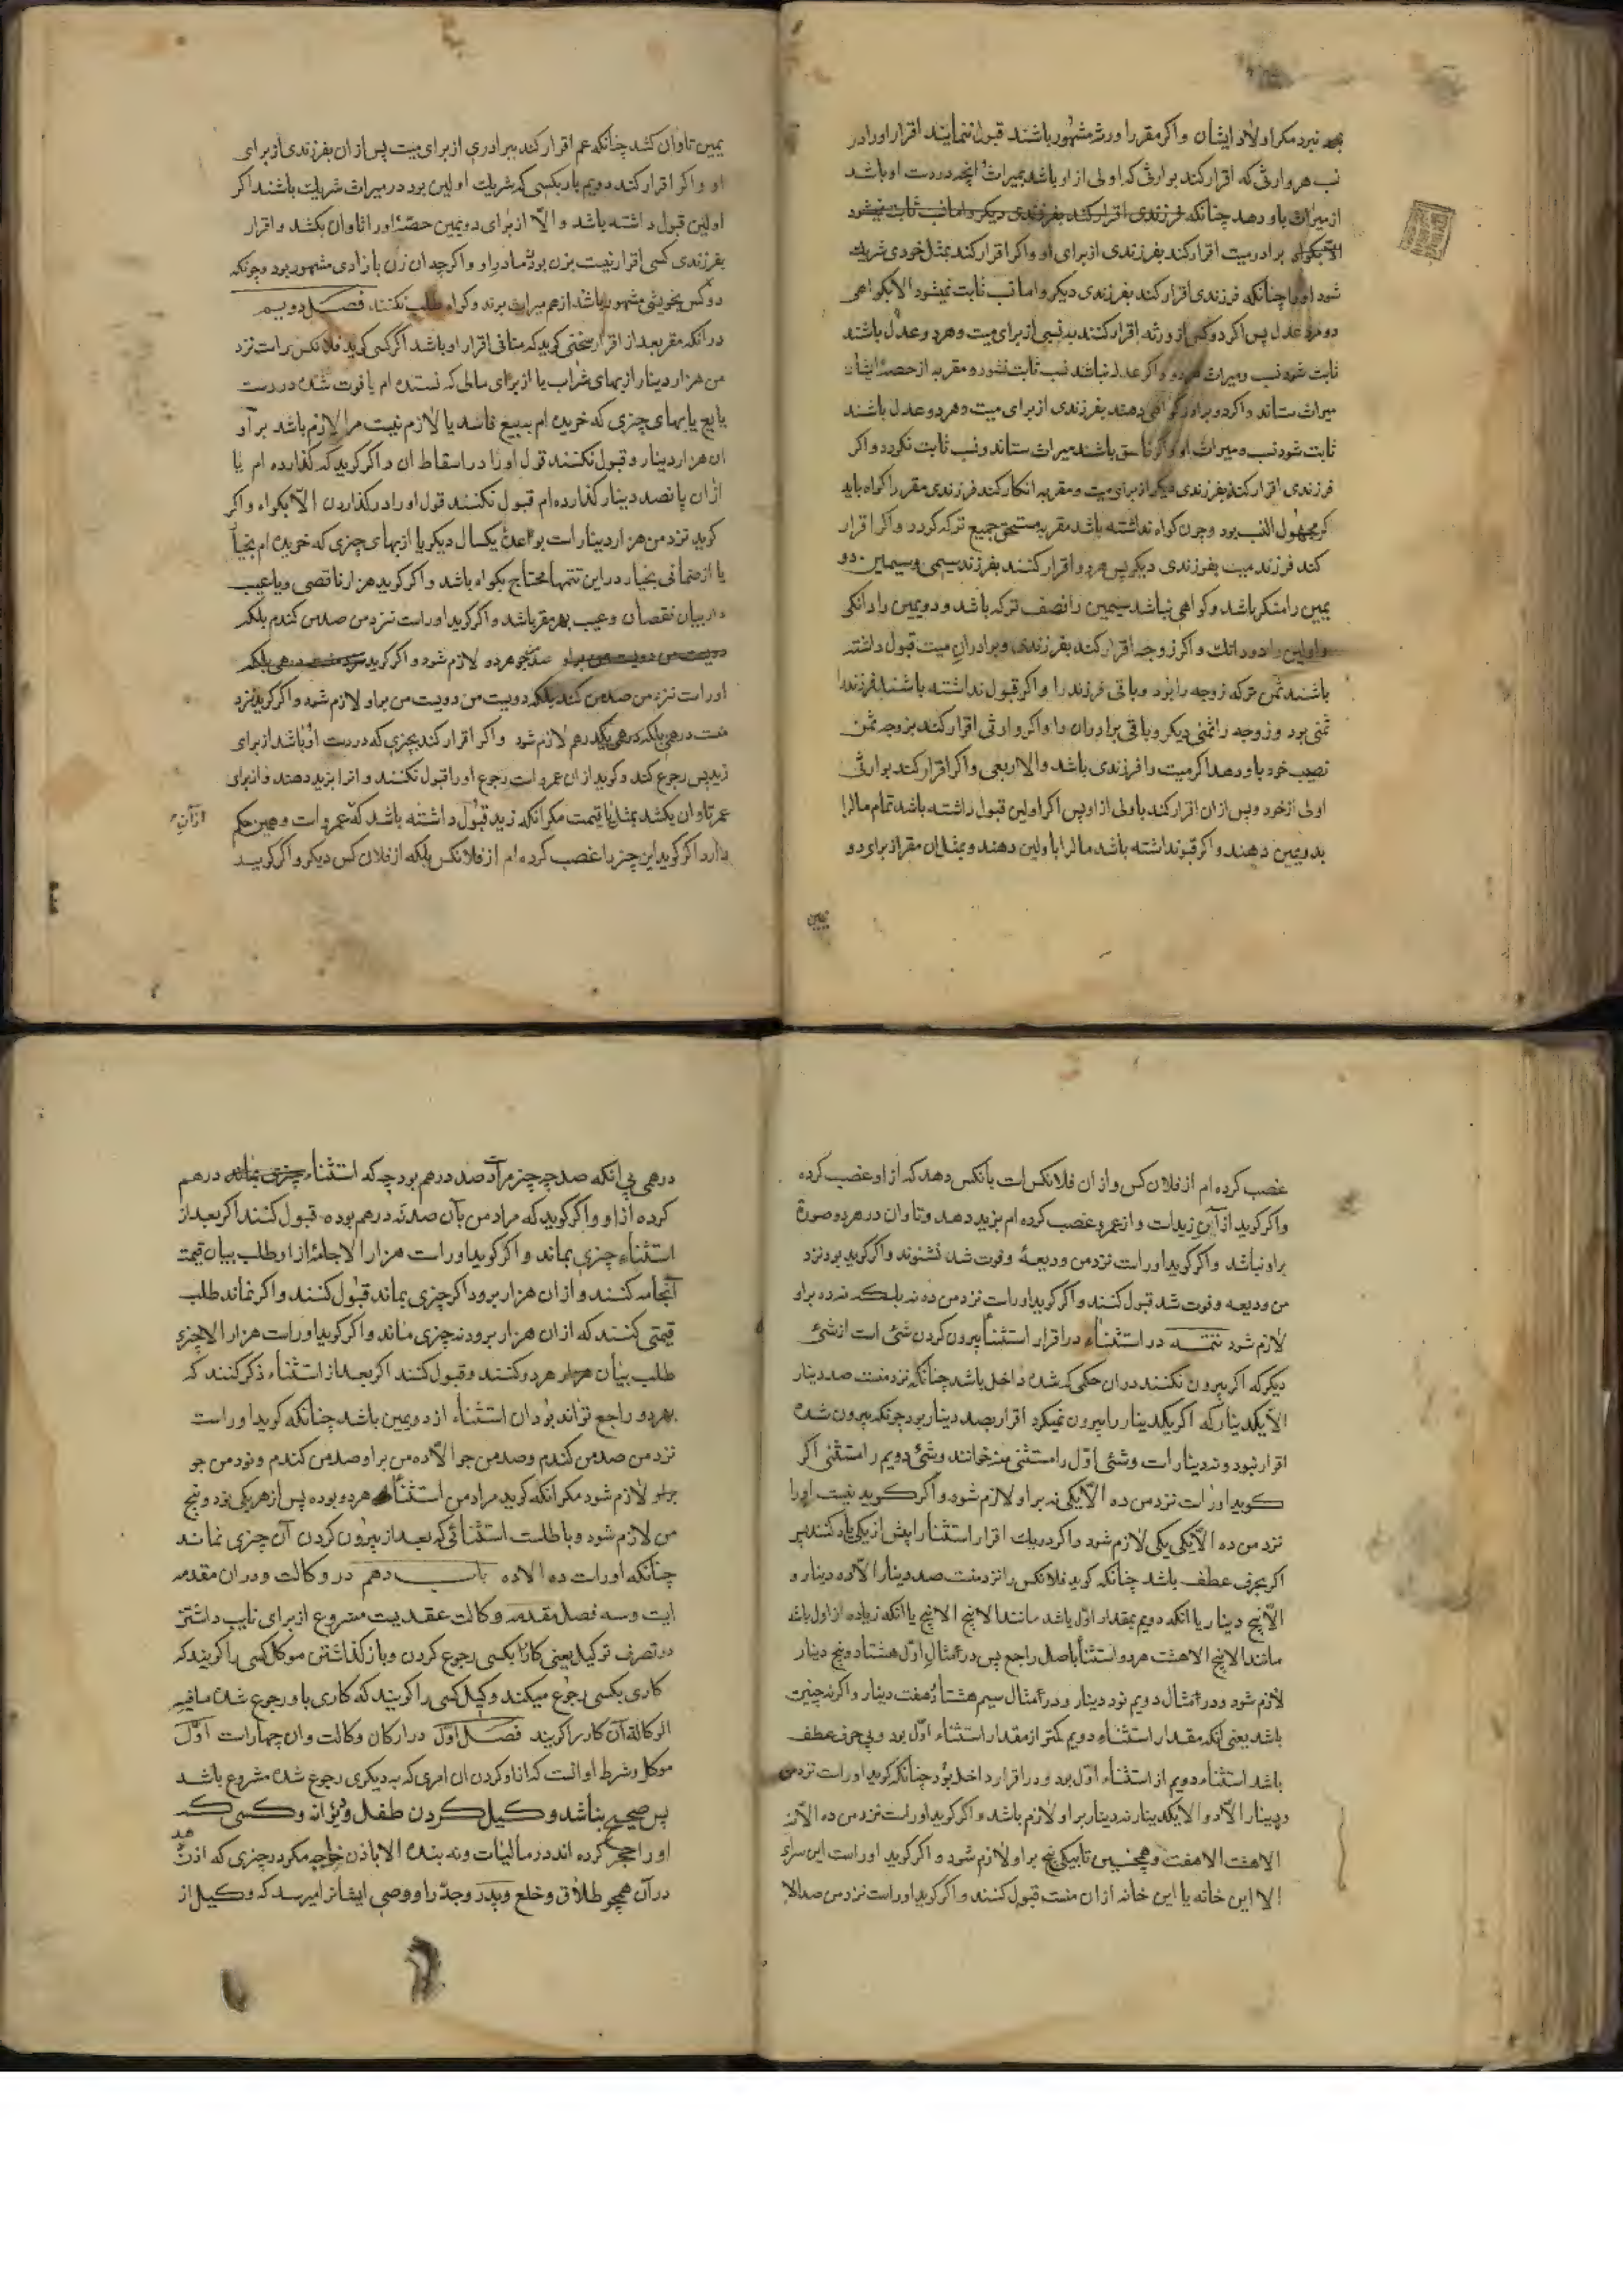 نبرد مکر اولاد ایشان واکر مقر را ورثه مشهور باشند قبول ننمایند اقرار اورا در
نسب هر وارثی که اقرار کند بوارثی که اولی از او باشد بمیراث آنچه در دست او باشد
از میراث باو دهد چنانکه فرزندی اقرار کند بفرزندی دیکر واما نسب ثابت نمیشود
الا بکواه برادر میت اقرار کند بفرزندی از برای او واکر اقرار کند بمثل خودی شریک
شود اورا چنانکه فرزندی اقرار کند بفرزندی دیکر واما نسب ثابت نمیشود الا بکواهی
دو مرد عدل پس اکر دو کس از ورثه اقرار کنند به نسبی از برای میت وهر دو عدل باشند
ثابت شود نسب ومیراث هر دو واکر عدل نباشد نسب ثابت نشود ومقر به از حصهٔ ایشان
میراث ستاند واکر دو برادر کواهی دهند بفرزندی از برای میت وهر دو عدل باشند
ثابت شود نسب ومیراث او واکر فاسق باشند میراث ستاند ونسب ثابت نکردد واکر
فرزندی اقرار کند بفرزندی دیکر از برای میت ومقر به انکار کند فرزندی مقر را کواه باید
کر مجهول النسب بود وچون کواه نداشته باشد مقر به مستحق جمیع ترکه کردد واکر اقرار
کند فرزند میت بفرزندی دیکر پس هر دو اقرار کنند بفرزند سیمی وسیمین دو
یمین را منکر باشد وکواهی نباشد سیمین را نصف ترکه باشد ودویمین را دانکی
واولین را دو دانک واکر زوجه اقرار کند بفرزندی وبرادران میت قبول داشته
باشند ثمن ترکه زوجه را بود وباقی فرزند را واکر قبول نداشته باشند فرزند را
ثمنی بود وزوجه را ثمنی دیکر وباقی برادران را واکر وارثی اقرار کند بزوجه ثمن
نصیب خود باو دهد اکر میت را فرزندی باشد والا ربعی واکر اقرار کند بوارثی
اولی از خود وپس از ان اقرار کند باولی از او پس اکر اولین قبول داشته باشد تمام مال را
بدویمین دهند واکر قبول نداشته باشد مال را باولین دهند وبمثل ان مقر از برای دو
یمین
یمین تاوان کشد چنانکه عم اقرار کند ببرادری از برای میت پس از ان بفرزندی از برای
او واکر اقرار کند دویم بار بکسی که شریک اولین بود در میراث شریک باشند اکر
اولین قبول داشته باشد والّا از برای دویمین حصهٔ اورا تاوان بکشد واقرار
بفرزندی کسی اقرار نیست بزن بودن مادر او واکرچه ان زن بازادی مشهور بود وچونکه
دو کس بخویشی مشهور باشند از هم میراث برند وکواه طلب نکنند فصل دویم
در آنکه مقر بعد از اقرار سخنی کوید که منافی اقرار او باشد اکر کسی کوید فلانکس راست نزد
من هزار دینار از بهای شراب یا از برای مالی که نستده ام یا فوت شده در دست
بایع یا بهای چیزی که خریده ام ببیع فاسد یا لازم نیست مرا لازم باشد بر او
ان هزار دینار وقبول نکنند قول اورا در اسقاط ان واکر کوید که کذارده ام یا
از ان پانصد دینار کذارده ام قبول نکنند قول اورا در کذاردن الّا بکواه واکر
کوید نزد من هزار دینار است بوعدهٔ یکسال دیکر یا از بهای چیزی که خریده ام بخیار
یا از ضمانی بخیار در این تتمها محتاج بکواه باشد واکر کوید هزار ناقصی ویا عیب
دار بیان نقصان وعیب بهر مقر باشد واکر کوید اوراست نزد من صد من کندم بلکه
صد من جو هر دو لازم شود واکر کوید
اوراست نزد من صد من کندم بلکه دویست من دویست من براو لازم شود واکر کوید نزد
منست درهمی بلکه درهمی یکدرهم لازم شود واکر اقرار کند بچیزی که در دست او باشد از برای
زید پس رجوع کند وکوید از ان عمرو است رجوع اورا قبول نکنند وانرا بزید دهند واز برای
عمر تاوان بکشد بمثل یا قیمت مکر آنکه زید قبول داشته باشد که عمرو است وهمین حکم
از آن
دارد اکر کوید این چیز را غصب کرده ام از فلانکس بلکه از فلان کس دیکر واکر کوید
غصب کرده ام از فلان کس واز ان فلانکس است بانکس دهد که از او غصب کرده
واکر کوید از آن زیدات واز عمرو غصب کرده ام بزید دهد وتاوان در هر دو صورة
براو نباشد واکر کوید اوراست نزد من ودیعهٔ وفوت شد نشنوند واکر کوید بود نزد
من ودیعه وفوت شد قبول کنند واکر کوید اوراست نزد من ده نه بلکه نه ده براو
لازم شود تتمه در استثناء در اقرار استثنا بیرون کردن شئ است از شئ
دیکر که اکر بیرون نکنند در ان حکمی که شده داخل باشد چنانکه نزد منست صد دینار
الّا یکدینار که اکر یکدینار را بیرون نمیکرد اقرار بصد دینار بود چونکه بیرون شده
اقرار نبود ونه دینار است وشئی اوّل را مستثنی منه خوانند وشئ دویم را مستثنی اکر
کوید اوراست نزد من ده الّا یکی نه براو لازم شود واکر کوید نیست اورا
نزد من ده الّا یکی یکی لازم شود واکر در یک اقرار استثنا را پیش از یکی یاد کنند پس
اکر بحرف عطف باشد چنانکه کوید فلانکس را نزد منست صد دینار الّا ده دینار و
الّا پنج دینار یا انکه دویم بمقدار اوّل باشد مانند الا پنج الا پنج یا انکه زیاده از اول باشد
مانند الا پنج الا هشت هر دو استثنا باصل راجع پس در مثال اوّل هشتاد وپنج دینار
لازم شود ودر مثال دویم نود دینار ودر مثال سیم هشتاد وهفت دینار واکر نه چنین
باشد یعنی آنکه مقدار استثناء دویم کمتر از مقدار استثناء اوّل بود وبی حرف عطف
باشد استثناء دویم از استثناء اوّل بود ودر اقرار داخل بود چنانکه کوید اوراست نزد من
ده دینار الّا دو الا یکدینار نه دینار براو لازم باشد واکر کوید اوراست نزد من ده الّا نه
الا هشت الا هفت وهمچنین تا بیکی پنج براو لازم شود واکر کوید اوراست این سرای
الا این خانه یا این خانه از ان منست قبول کنند واکر کوید اوراست نزد من صد الا
درهمی بی انکه صد چه چیز مراد صد درهم بود چه که استثناء درهم
کرده از او واکر کوید که مراد من بآن صد نه درهم بوده قبول کنند اکر بعد از
استثناء چیزی بماند واکر کوید اوراست هزار الا جامهٔ از او طلب بیان قیمت
آنجامه کنند واز ان هزار برود اکر چیزی بماند قبول کنند واکر نماند طلب
قیمتی کنند که از ان هزار برود نه چیزی ماند واکر کوید اوراست هزار الا چیزی
طلب بیان هر دو کنند وقبول کنند اکر بعد از استثناء ذکر کنند که
بهر دو راجع تواند بود ان استثناء از دویمین باشد چنانکه کوید اوراست
نزد من صد من کندم وصد من جو الّا ده من براو صد من کندم ونود من جو
براو لازم شود مکر انکه کوید مراد من استثناء هر دو بوده پس از هر یکی نود وپنج
من لازم شود وباطلست استثنائی که بعد از بیرون کردن آن چیزی نماند
چنانکه اوراست ده الا ده باب دهم در وکالت ودر ان مقدمه
ایست وسه فصل مقدمه وکالت عقدیست مشروع از برای نایب داشتن
در تصرف توکیل یعنی کار را بکسی رجوع کردن وباز کذاشتن موکل کسی را کویند که
کاری بکسی رجوع میکند وکیل کسی را کویند که کاری باو رجوع شده مافیه
الوکاله آن کار را کویند فصل اوّل در ارکان وکالت وان چهار است اوّل
موکل وشرط او انست که از او کردن ان امری که به دیکری رجوع شده مشروع باشد
پس صحیح نباشد وکیل کردن طفل ودیوانه وکسی که
اورا حجر کرده اند در مالیات ونه بنده الا باذن خواجه مکر در چیزی که اذن
در آن همچو طلاق وخلع وپدر وجد را ووصی ایشانرا میرسد که وکیل از